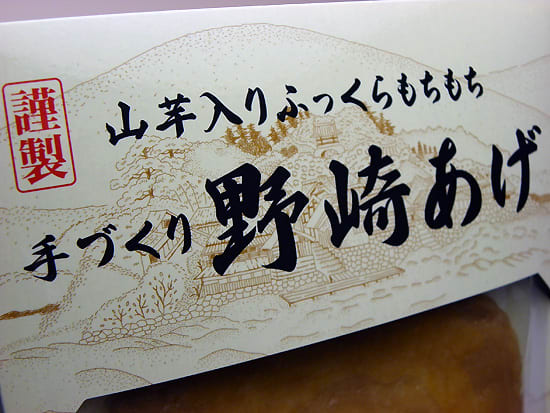 謹製
山芋入りふっくらもちもち
手づくり 野崎あげ